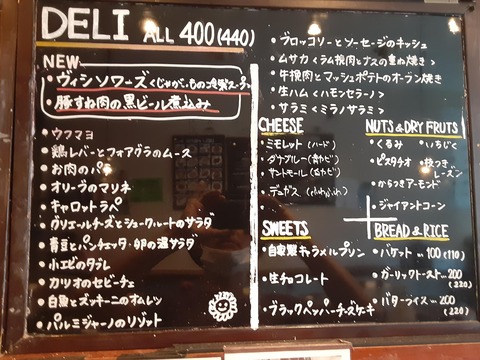 DELI ALL 400(440)
NEW
・ヴィシソワーズ<じゃがいもの冷製スープ>
・豚すね肉の黒ビール煮込み
・ウフマヨ
・鶏レバーとフォアグラのムース
・お肉のパテ
・オリーヴのマリネ
・キャロットラペ
・グリエールチーズとシュークルートのサラダ
・青豆とパンチェッタ・卵の温サラダ
・小エビのタブレ
・カツオのセビーチェ
・白魚とズッキーニのオムレツ
・パルミジャーノのリゾット
・ブロッコリーとソーセージのキッシュ
・ムサカ<ラム挽肉とナスの重ね焼き>
・牛挽肉とマッシュポテトのオーブン焼き
・生ハム<ハモンセラーノ>
・サラミ<ミラノサラミ>
CHEESE
・ミモレット(ハード)
・ダナブルー(青カビ)
・サントモール(白カビ)
・デーツ
SWEETS
・自家製キャラメルプリン
・生チョコレート
・ブラックペッパーチーズケーキ
NUTS&DRY FRUTS
・くるみ ・いちじく
・ピスタチオ ・枝つきレーズン
・からつきアーモンド
・ジャイアントコーン
BREAD&RICE
・バゲット … 100(110)
・ガーリックトースト … 200
(220)
・バターライス … 200
(220)